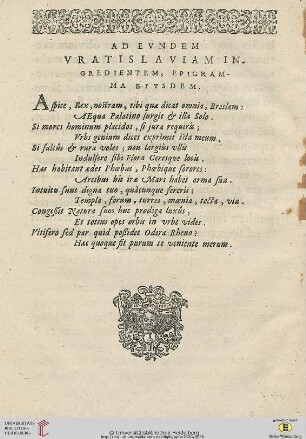 AD EVNDEM
VRATISLAVIAM IN-
GREDIENTEM, EPIGRAM-
MA EIVSDEM.
Aspice, Rex, nostram, tibi quæ dicat omnia, Breslam:
AEqua Palatino surgit & illa Solo.
Si mores hominum placidos, si jura requiris;
Vrbs genium dicet exprimit illa meum.
Si saltus & rura voles; non largius ullis
Indulsere sibi Flora Ceresque locis.
Has habitant ædes Phœbus, Phœbique sorores:
Arcibus his iræ Mars habet arma suæ.
Intuitu sunt digna tuo, quàcunque fereris;
Templa, forum, turres, mœnia, tecta, viæ.
Congessit Natura suos huc prodiga luxus,
Et totus opes orbis in vrbe vides.
Vitifero sed par quid possidet Odera Rheno?
Has quoque sit purum te veniente merum.
UNIVERSITÄTS-
BIBLIOTHEK
HEIDELBERG
© Universitätsbibliothek Heidelberg
gefördert durch die